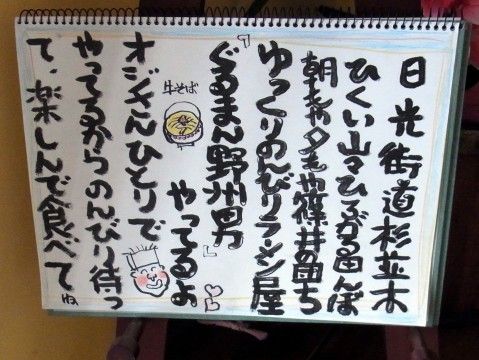 日光街道杉並木
ひくい山々ひろがる田んぼ
朝もや夕もや篠井の里ち
ゆっくりのんびりラーメン屋
『ぐるまん野州男』
やってるよ
牛そば
オジさんひとりで
やってるからのんびり待っ
て、楽しんで食べてね